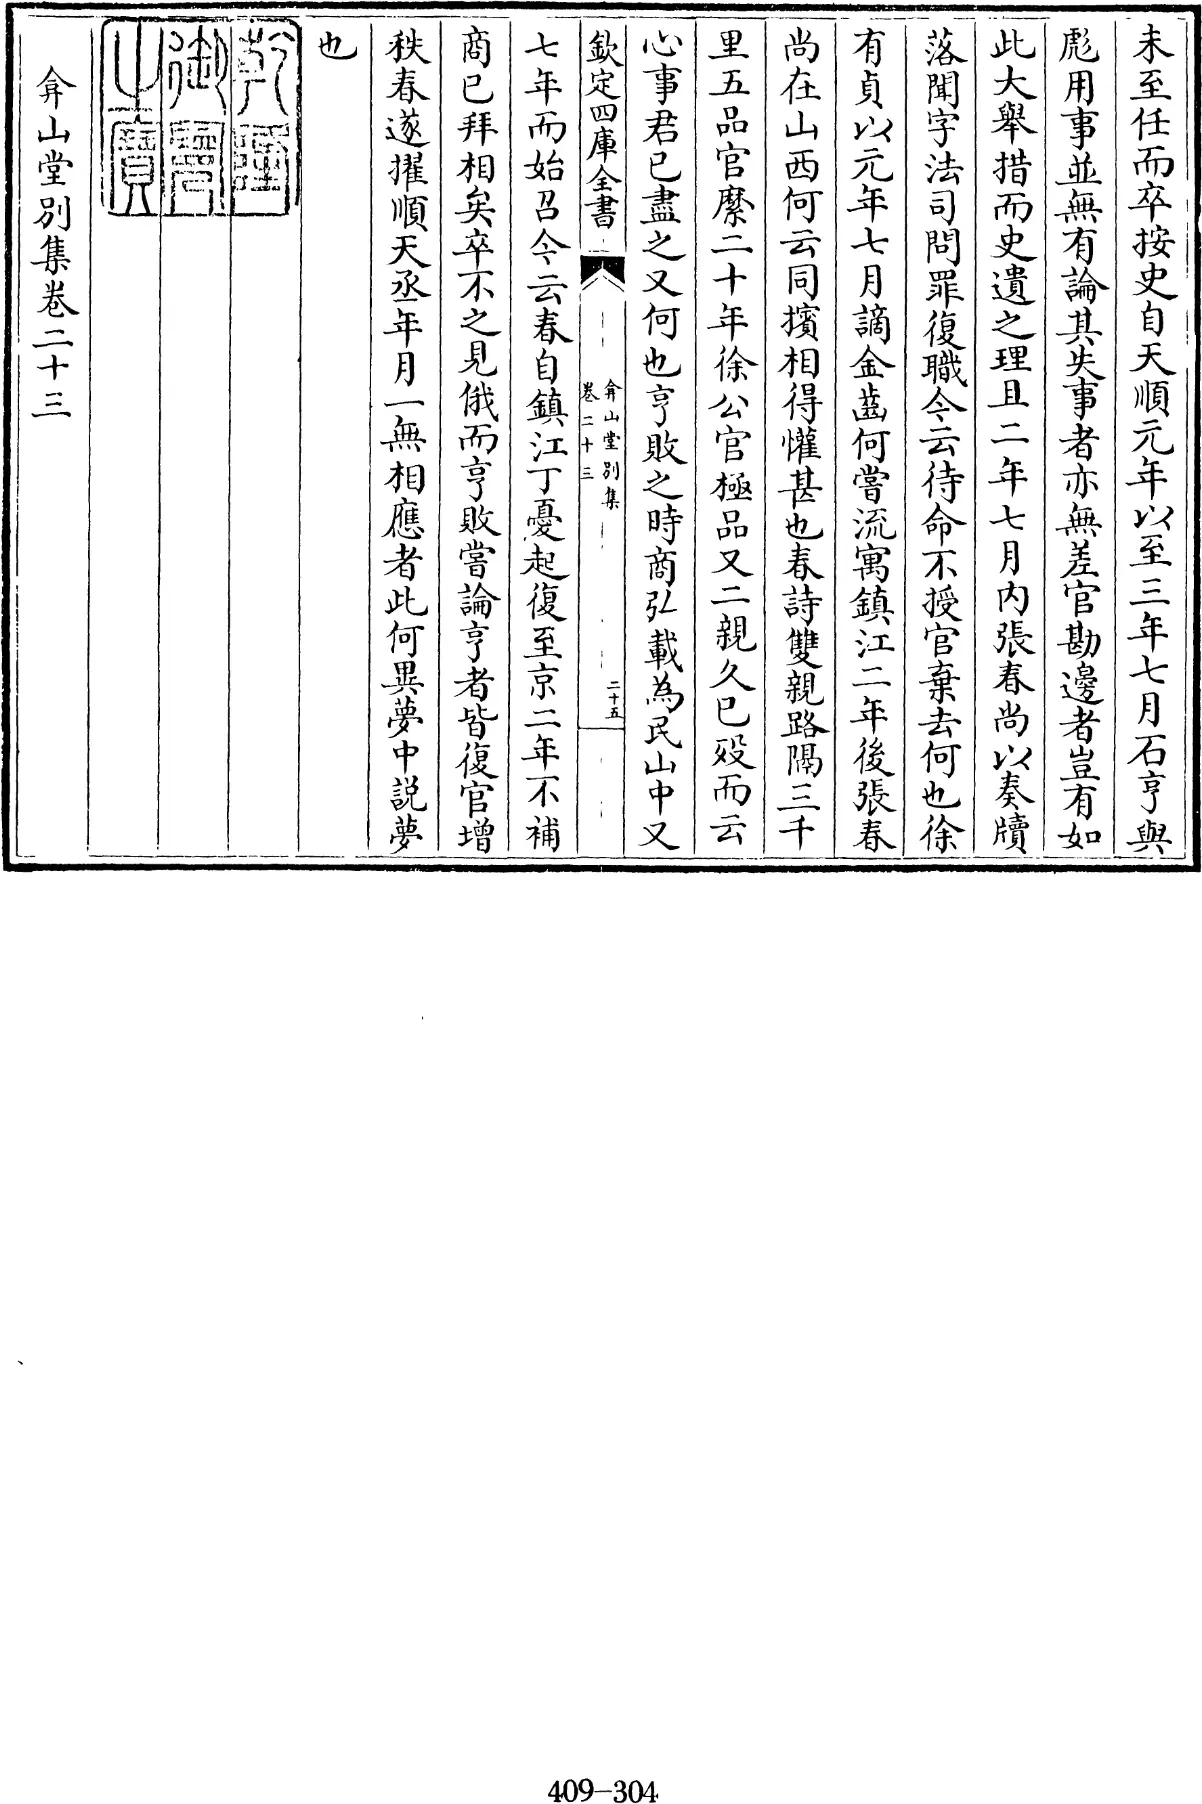 未至任而卒按史自天順元年以至三年七月石亨與
彪用事並無有論其失事者亦無差官勘邊者豈有如
此大舉措而史遺之理且二年七月内張春尚以奏牘
落聞字法司問罪復職今云待命不授官棄去何也徐
有貞以元年七月謫金齒何嘗流寓鎮江二年後張春
尚在山西何云同擯相得懽甚也春詩雙親路隔三千
里五品官縻二十年徐公官極品又二親久已歿而云
心事君已盡之又何也亨敗之時商弘載為民山中又
欽定四庫全書
弇山堂别集
卷二十三
二十五
七年而始召今云春自鎮江丁憂起復至京二年不補
商已拜相矣卒不之見俄而亨敗嘗論亨者皆復官增
秩春遂擢順天丞年月一無相應者此何異夢中説夢
也
乾隆
御覽
之寶
弇山堂别集卷二十三
409-304